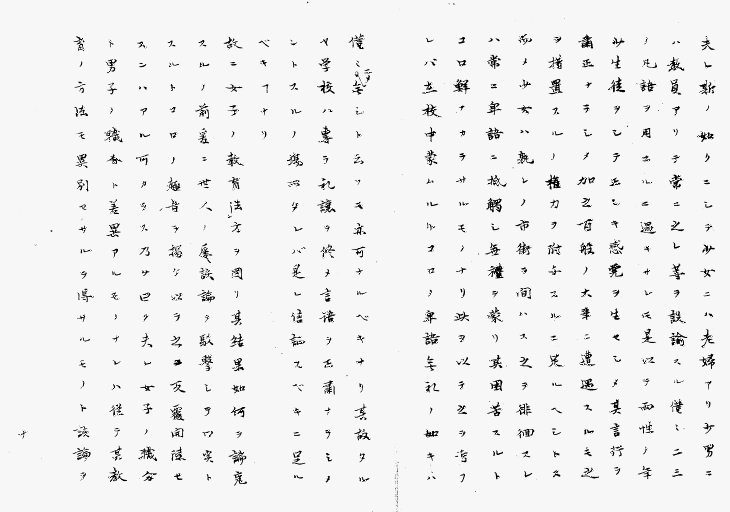 夫レ斯ノ如クニシテ少女ニハ老婦アリ少男ニ
ハ教員アリテ常ニ之レ等ヲ説諭スル僅ミニ三
ノ凡語ヲ用ユルニ過キサレモ是以ヲ両性ノ年
少生徒ヲシテ正シキ感覚ヲ生セシメ其言行ヲ
粛正ナラシメ加之百般ノ大事ニ遭遇スルモ之
ヲ措置スルノ権力ヲ附与スルニ足ルヘシトス
而ノ少女ハ孰レノ市街ヲ間ハス之ヲ徘徊スレ
ハ常ニ卑語ニ抵触シ無禮ヲ蒙リ其困苦スルト
コロ鮮ナカラサルモノナリ此ヲ以テ之ヲ考フ
レバ在校中蒙ムルトコロノ卑語無礼ノ如キハ
僅ミニシト云フモ亦可ナルベキナリ其故タル
ヤ学校ハ専ラ礼讓ヲ修メ言語ヲ正粛ナラシメ
ントスルノ場所タレバ是レ信証スベキニ足ル
ベキナリ
故ニ女子ノ教育法方ヲ図リ其結果如何ヲ論究
スルノ前還ニ世人ノ屡談論ヲ駁撃シテ口実ト
スルトコロノ趣旨ヲ掲ケ以テ之ヲ反覆開陳セ
スンハアル可カラス乃チ曰ク夫レ女子ノ職分
ト男子ノ職務ト差異アルモノナレハ従テ其教
育ノ方法モ異別セサルヲ得サルモノト該論ヲ
十